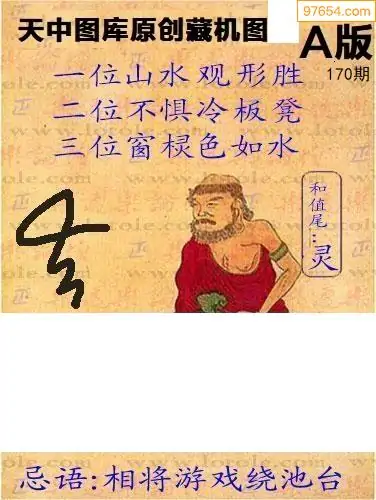 97654.com
天中图库原创藏机图
A版
170期
一位山水观形胜
二位不惧冷板凳
三位窗棂色如水
和值尾:灵
忌语:相将游戏绕池台